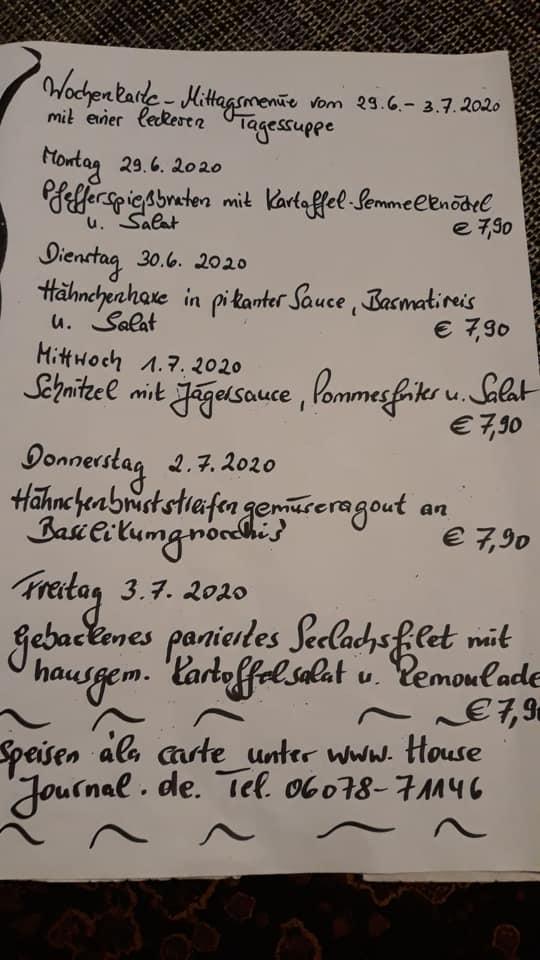 Wochenkarte - Mittagsmenüe vom 29.6. - 3.7.2020
mit einer leckeren Tagessuppe
Montag 29.6.2020
Pfefferspießbraten mit Kartoffel-Semmelknödel
u. Salat € 7,90
Dienstag 30.6.2020
Hähnchenhaxe in pikanter Sauce, Basmatireis
u. Salat € 7,90
Mittwoch 1.7.2020
Schnitzel mit Jägersauce, Pommesfrites u. Salat
€ 7,90
Donnerstag 2.7.2020
Hähnchenbruststreifengemüseragout an
Basilikumgnocchis € 7,90
Freitag 3.7.2020
Gebackenes paniertes Seelachsfilet mit
hausgem. Kartoffelsalat u. Remoulade
€ 7,90
Speisen àla carte unter www. House
Journal. de. Tel. 06078-71146